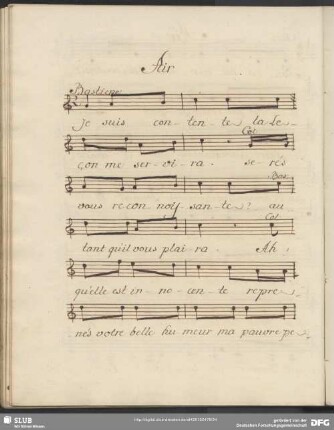 Air
Bastiene
je suis con-ten-te ta le-
Col
çon me ser-vi-ra. se-rés
Bas
vous re con-nois-san-te? au
Col
tant qu'il vous plai-ra. Ah,
qu'elle est in-no-cen-te re pre-
nés votre belle hu meur ma pauvre pe
SLUB
Wir führen Wissen.
gefördert von der
Deutschen Forschungsgemeinschaft
DFG